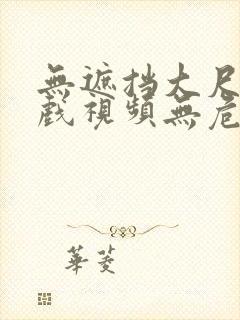 無遮挡大尺
戲視頻無危
華菱